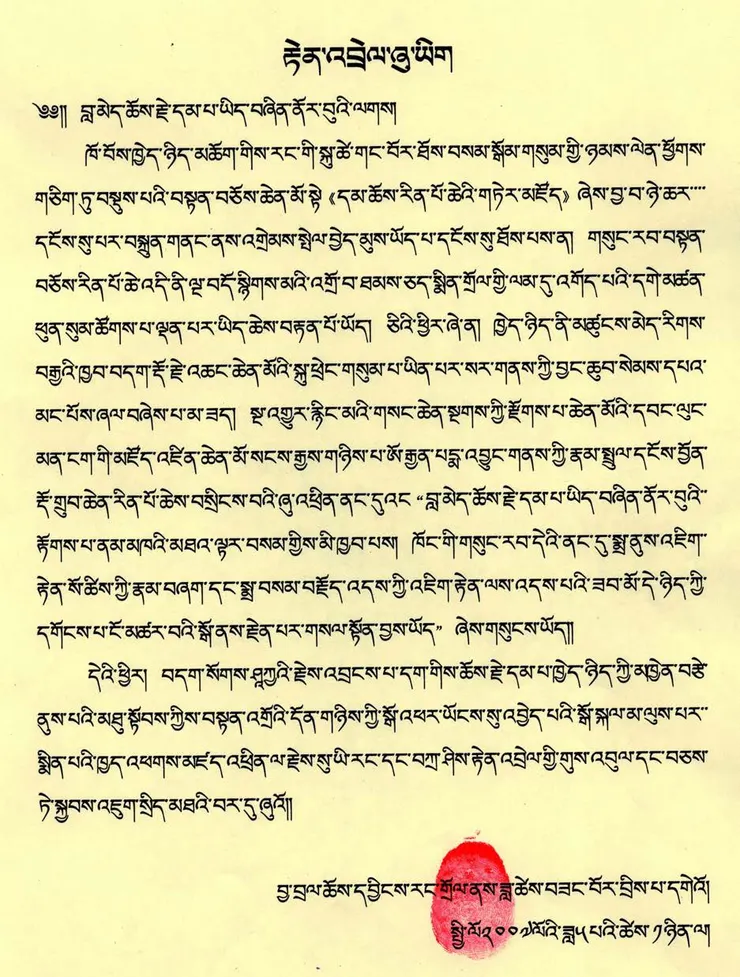 རྟེན་འབྲེལ་ཞུ་ཡིག
༄༅།། བླ་མེད་ཆོས་རྗེ་དམ་པ་ཡིད་བཞིན་ནོར་བུའི་ལགས།
ཁོ་བོས་ཁྱེད་ཉིད་མཆོག་གིས་རང་གི་སྐུ་ཚེ་གང་བོར་ཐོས་བསམ་སྒོམ་གསུམ་གྱི་ཉམས་ལེན་ཕྱོགས་
གཅིག་ཏུ་བསྡུས་པའི་བསྟན་བཅོས་ཆེན་མོ་སྟེ《དམ་ཆོས་རིན་པོ་ཆེའི་གཏེར་མཛོད》ཞེས་བྱ་བ་ཉེ་ཆར་་་་
དངོས་སུ་པར་བསྐྲུན་གནང་ནས་འགྲེམས་སྤེལ་བྱེད་མུས་ཡོད་པ་དངོས་སུ་ཐོས་པས་ན། གསུང་རབ་བསྟན་
བཅོས་རིན་པོ་ཆེ་འདི་ནི་ལྔ་བདོ་སྙིགས་མའི་འགྲོ་བ་ཐམས་ཅད་སྨིན་གྲོལ་གྱི་ལམ་དུ་འགོད་པའི་དགེ་མཚན་
ཕུན་སུམ་ཚོགས་པ་ལྡན་པར་ཡིད་ཆེས་བརྟན་པོ་ཡོད། ཅིའི་ཕྱིར་ཞེ་ན། ཁྱེད་ཉིད་ནི་མཚུངས་མེད་རིགས་
བརྒྱའི་ཁྱབ་བདག་རྡོ་རྗེ་འཆང་ཆེན་མོའི་སྐུ་ཕྲེང་གསུམ་པ་ཡིན་པར་སར་གནས་ཀྱི་བྱང་ཆུབ་སེམས་དཔའ་
མང་པོས་ཞལ་བཞེས་པ་མ་ཟད། སྔ་འགྱུར་རྙིང་མའི་གསང་ཆེན་སྔགས་ཀྱི་རྫོགས་པ་ཆེན་མོའི་དབང་ལུང་
མན་ངག་གི་མཛོད་འཛིན་ཆེན་མོ་སངས་རྒྱས་གཉིས་པ་ཨོ་རྒྱན་པདྨ་འབྱུང་གནས་ཀྱི་རྣམ་སྤྲུལ་དངོས་བྱོན་
རྡོ་གྲུབ་ཆེན་རིན་པོ་ཆེས་བསྲིངས་བའི་ཞུ་འཕྲིན་ནང་དུའང་“བླ་མེད་ཆོས་རྗེ་དམ་པ་ཡིད་བཞིན་ནོར་བུའི་་
རྟོགས་པ་ནམ་མཁའི་མཐའ་ལྟར་བསམ་གྱིས་མི་ཁྱབ་པས། ཁོང་གི་གསུང་རབ་དེའི་ནང་དུ་སྨྲ་ནུས་འཇིག་་
རྟེན་སོ་ཚིས་ཀྱི་རྣམ་བཞག་དང་སྨྲ་བསམ་བརྗོད་འདས་ཀྱི་འཇིག་རྟེན་ལས་འདས་པའི་ཟབ་མོ་དེ་ཉིད་ཀྱི་
དགོངས་པ་ངོ་མཚར་བའི་སྒོ་ནས་རྗེན་པར་གསལ་སྟོན་བྱས་ཡོད”ཞེས་གསུངས་ཡོད།།
དེའི་ཕྱིར། བདག་སོགས་ཤཱཀྱའི་རྗེས་འབྲངས་པ་དག་གིས་ཆོས་རྗེ་དམ་པ་ཁྱེད་ཉིད་ཀྱི་མཁྱེན་བརྩེ་
ནུས་པའི་མཐུ་སྟོབས་ཀྱིས་བསྟན་འགྲོའི་དོན་གཉིས་ཀྱི་སྒོ་འཕར་ཡོངས་སུ་འབྱེད་པའི་སྒོ་སྐལ་མ་ལུས་པར་་
སྨིན་པའི་ཁྱད་འཕགས་མཛད་འཕྲིན་ལ་རྗེས་སུ་ཡི་རང་དང་བཀྲ་ཤིས་རྟེན་འབྲེལ་གྱི་གུས་འབུལ་དང་བཅས་
ཏེ་སྐྱབས་འཇུག་སྲིད་མཐའི་བར་དུ་ཞུའོ།།
བྱ་བྲལ་ཆོས་དབྱིངས་རང་གྲོལ་ནས་ཟླ་ཚེས་བཟང་བོར་བྲིས་པ་དགེའོ།
སྤྱི་ལོ༢༠༠༧ལོའི་ཟླ༥པའི་ཚེས་༡ཉིན་ལ།